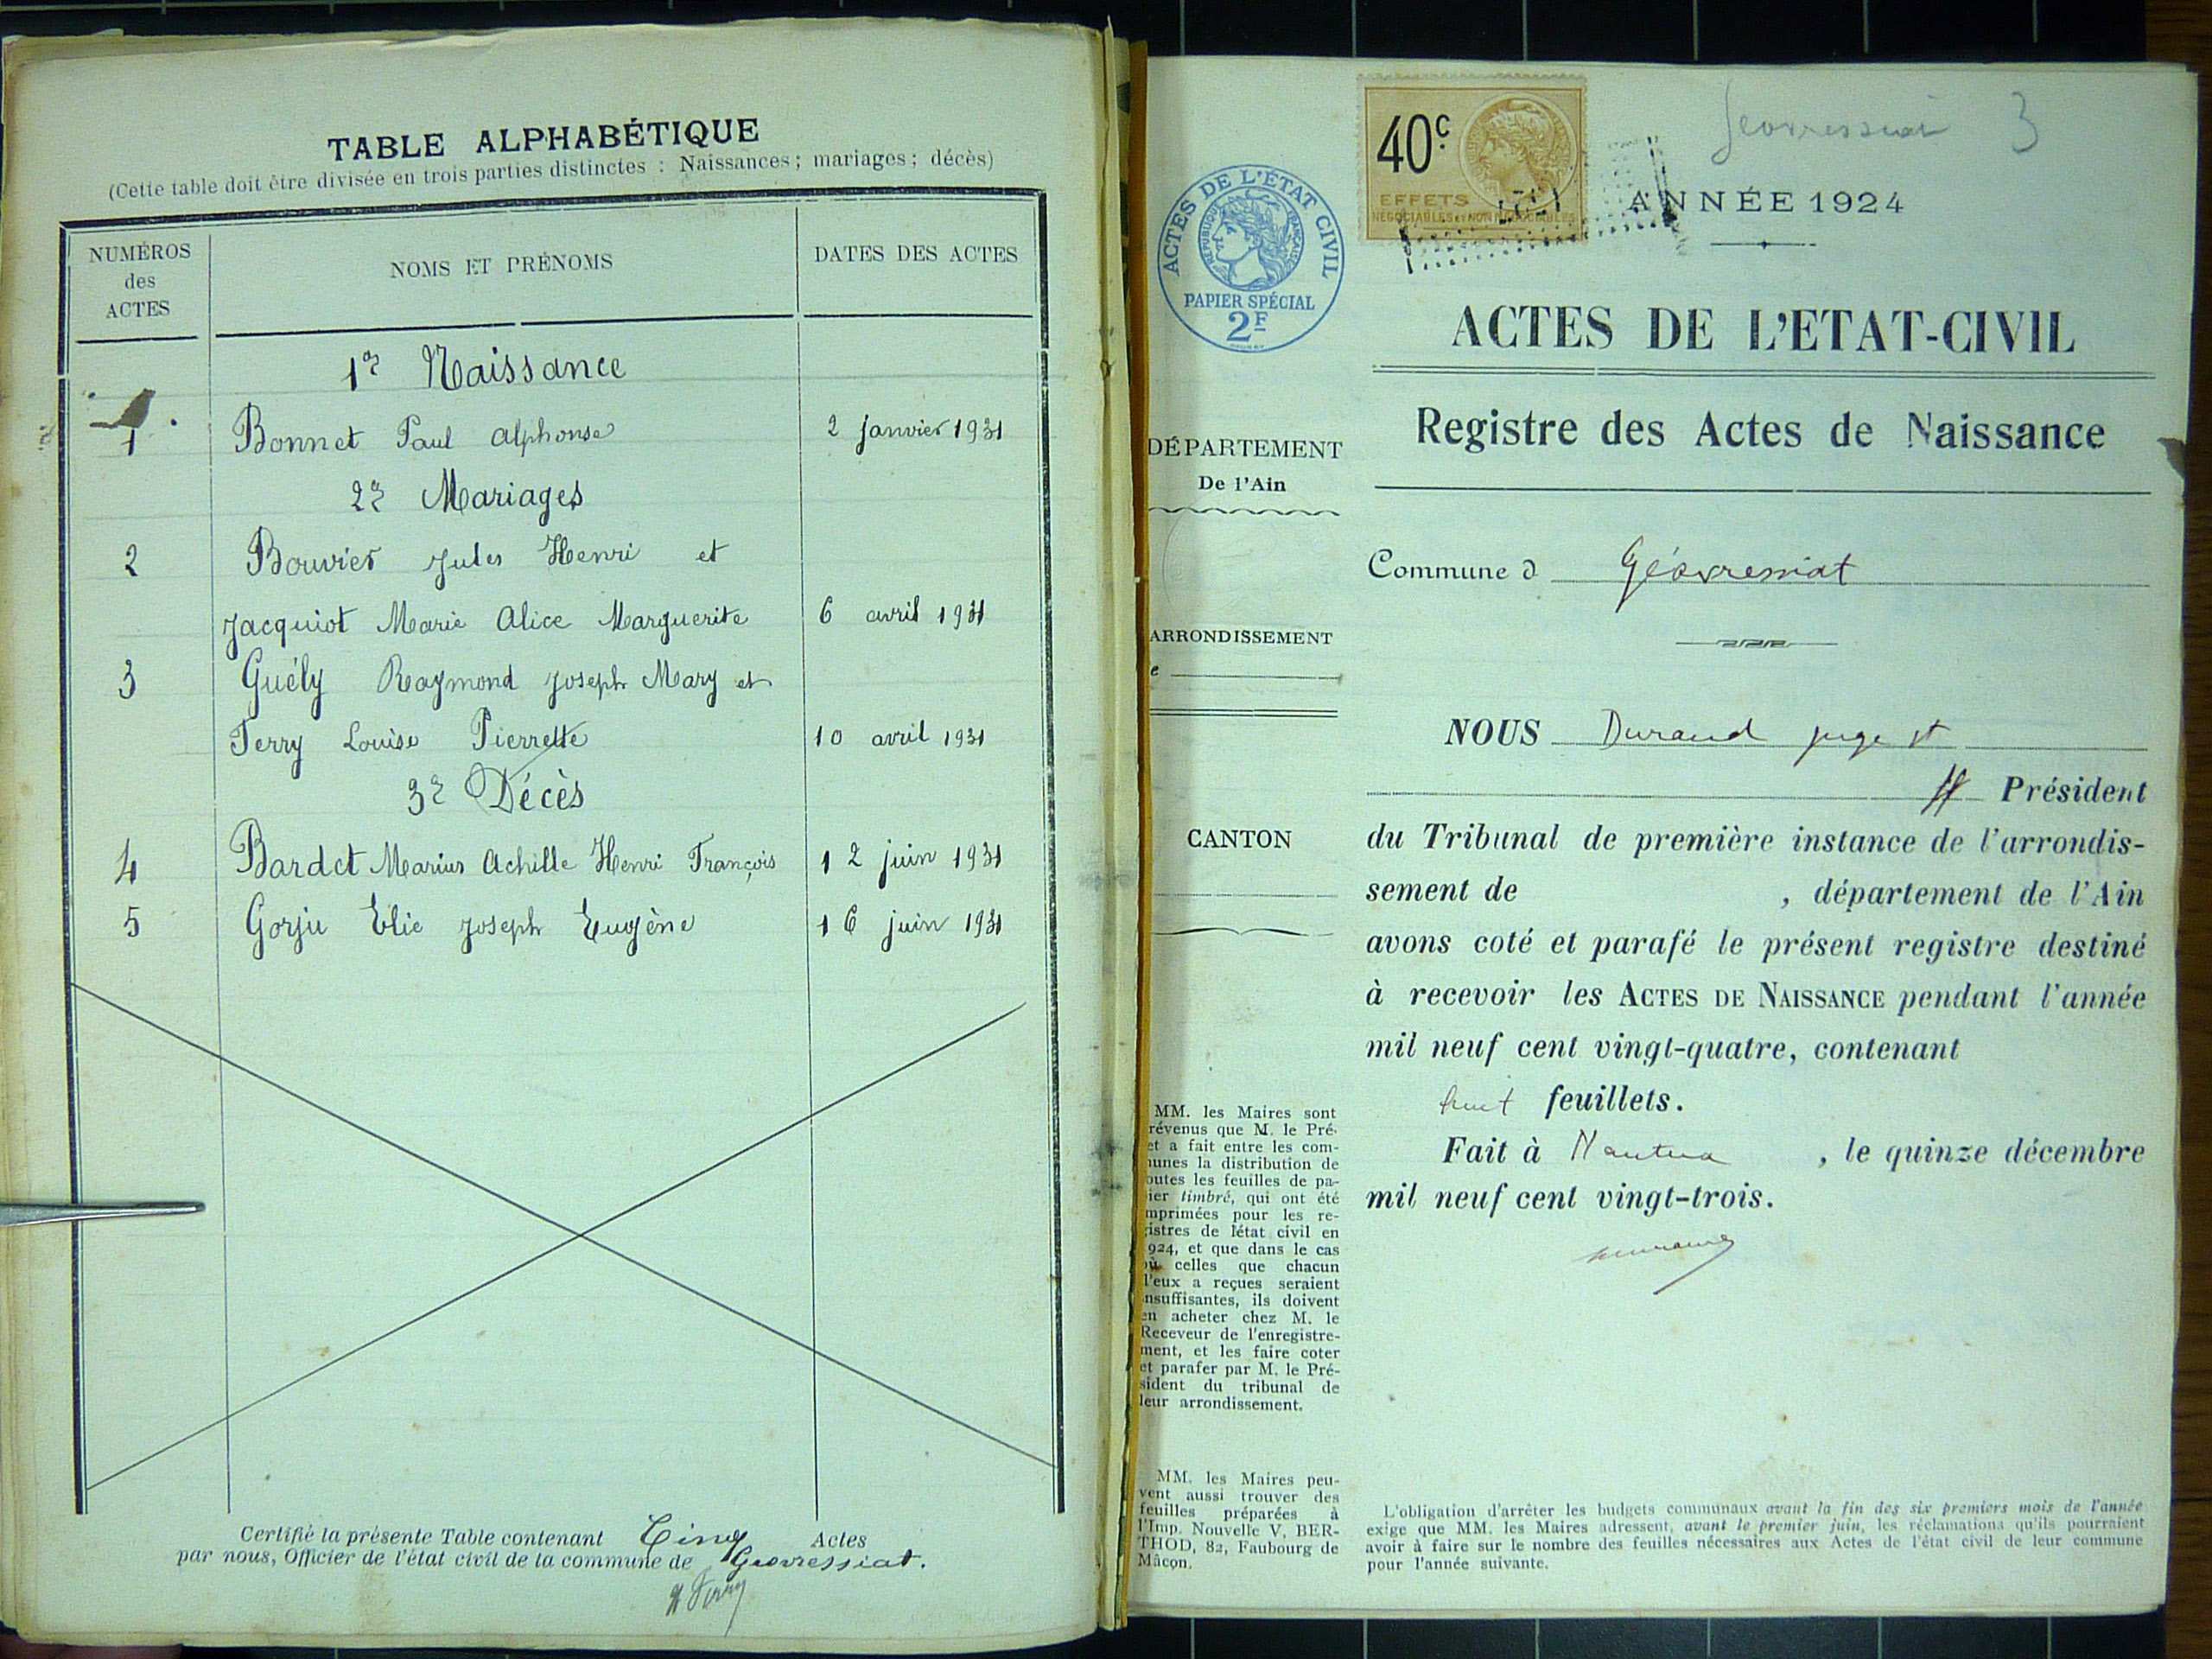 TABLE ALPHABÉTIQUE
(Cette table doit être divisée en trois parties distinctes : Naissances ; mariages ; décès)
NUMÉROS
des
ACTES
NOMS ET PRÉNOMS
DATES DES ACTES
1º Naissance
1 Bonnet Paul Alphonse 2 janvier 1931
2º Mariages
2 Bouvier Jules Henri et
Jacquiot Marie Alice Marguerite 6 avril 1931
3 Guély Raymond Joseph Mary et
Ferry Louise Pierrette 10 avril 1931
3º Décès
4 Bardet Marius Achille Henri François 12 juin 1931
5 Gorju Elie Joseph Eugène 16 juin 1931
Certifié la présente Table contenant Cinq Actes
par nous, Officier de l'état civil de la commune de Geovressiat.
ACTES DE L'ÉTAT CIVIL
RÉPUBLIQUE FRANÇAISE
PAPIER SPÉCIAL
2F
40c
EFFETS
NÉGOCIABLES ET NON NÉGOCIABLES
3
ANNÉE 1924
ACTES DE L'ETAT-CIVIL
Registre des Actes de Naissance
DÉPARTEMENT
De l'Ain
ARRONDISSEMENT
e
CANTON
MM. les Maires sont
révenus que M. le Pré-
et a fait entre les com-
unes la distribution de
outes les feuilles de pa-
ier timbré, qui ont été
mprimées pour les re-
istres de l'état civil en
924, et que dans le cas
où celles que chacun
d'eux a reçues seraient
nsuffisantes, ils doivent
en acheter chez M. le
Receveur de l'enregistre-
ment, et les faire coter
et parafer par M. le Pré-
sident du tribunal de
leur arrondissement.
MM. les Maires peu-
vent aussi trouver des
feuilles préparées à
l'Imp. Nouvelle V, BER-
THOD, 82, Faubourg de
Mâcon.
Commune d Géovressiat
NOUS Durand juge
Président
du Tribunal de première instance de l'arrondis-
sement de , département de l'Ain
avons coté et parafé le présent registre destiné
à recevoir les ACTES DE NAISSANCE pendant l'année
mil neuf cent vingt-quatre, contenant
huit feuillets.
Fait à Nantua , le quinze décembre
mil neuf cent vingt-trois.
L'obligation d'arrêter les budgets communaux avant la fin des six premiers mois de l'année
exige que MM. les Maires adressent, avant le premier juin, les réclamations qu'ils pourraient
avoir à faire sur le nombre des feuilles nécessaires aux Actes de l'état civil de leur commune
pour l'année suivante.